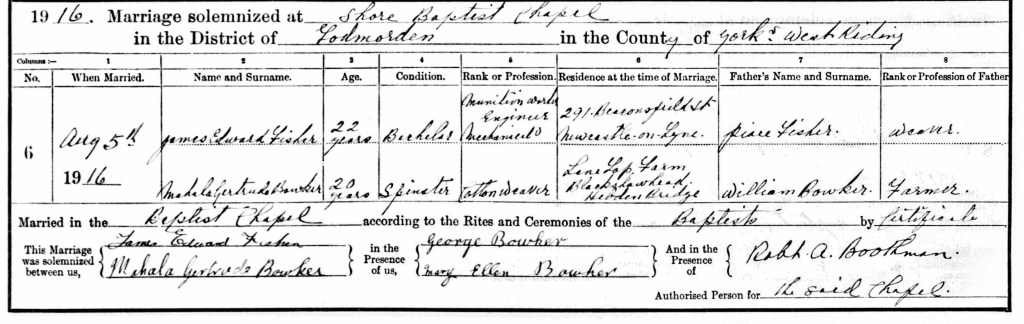 1916. Marriage solemnized at Shore Baptist Chapel
in the District of Todmorden in the County of Yorks West Riding
Columns :— 1 2 3 4 5 6 7 8
No. When Married. Name and Surname. Age. Condition. Rank or Profession. Residence at the time of Marriage. Father's Name and Surname. Rank or Profession of Father
6 Aug 5th 1916
James Edward Fisher 22 years Bachelor Munition Worker Engineer 291 Beaconsfield St Newcastle-on-Tyne. Fisher. Weaver.
Mahala Gertrude Bowker 20 years Spinster Cotton Weaver Farm Blackshawhead Hebden Bridge William Bowker. Farmer.
Married in the Baptist Chapel according to the Rites and Ceremonies of the Baptists by Certificate
This Marriage was solemnized between us, James Edward Fisher Mahala Gertrude Bowker
in the Presence of us, George Bowker Mary Ellen Bowker
And in the Presence of Robt. A. Boothman.
Authorised Person for the said Chapel.